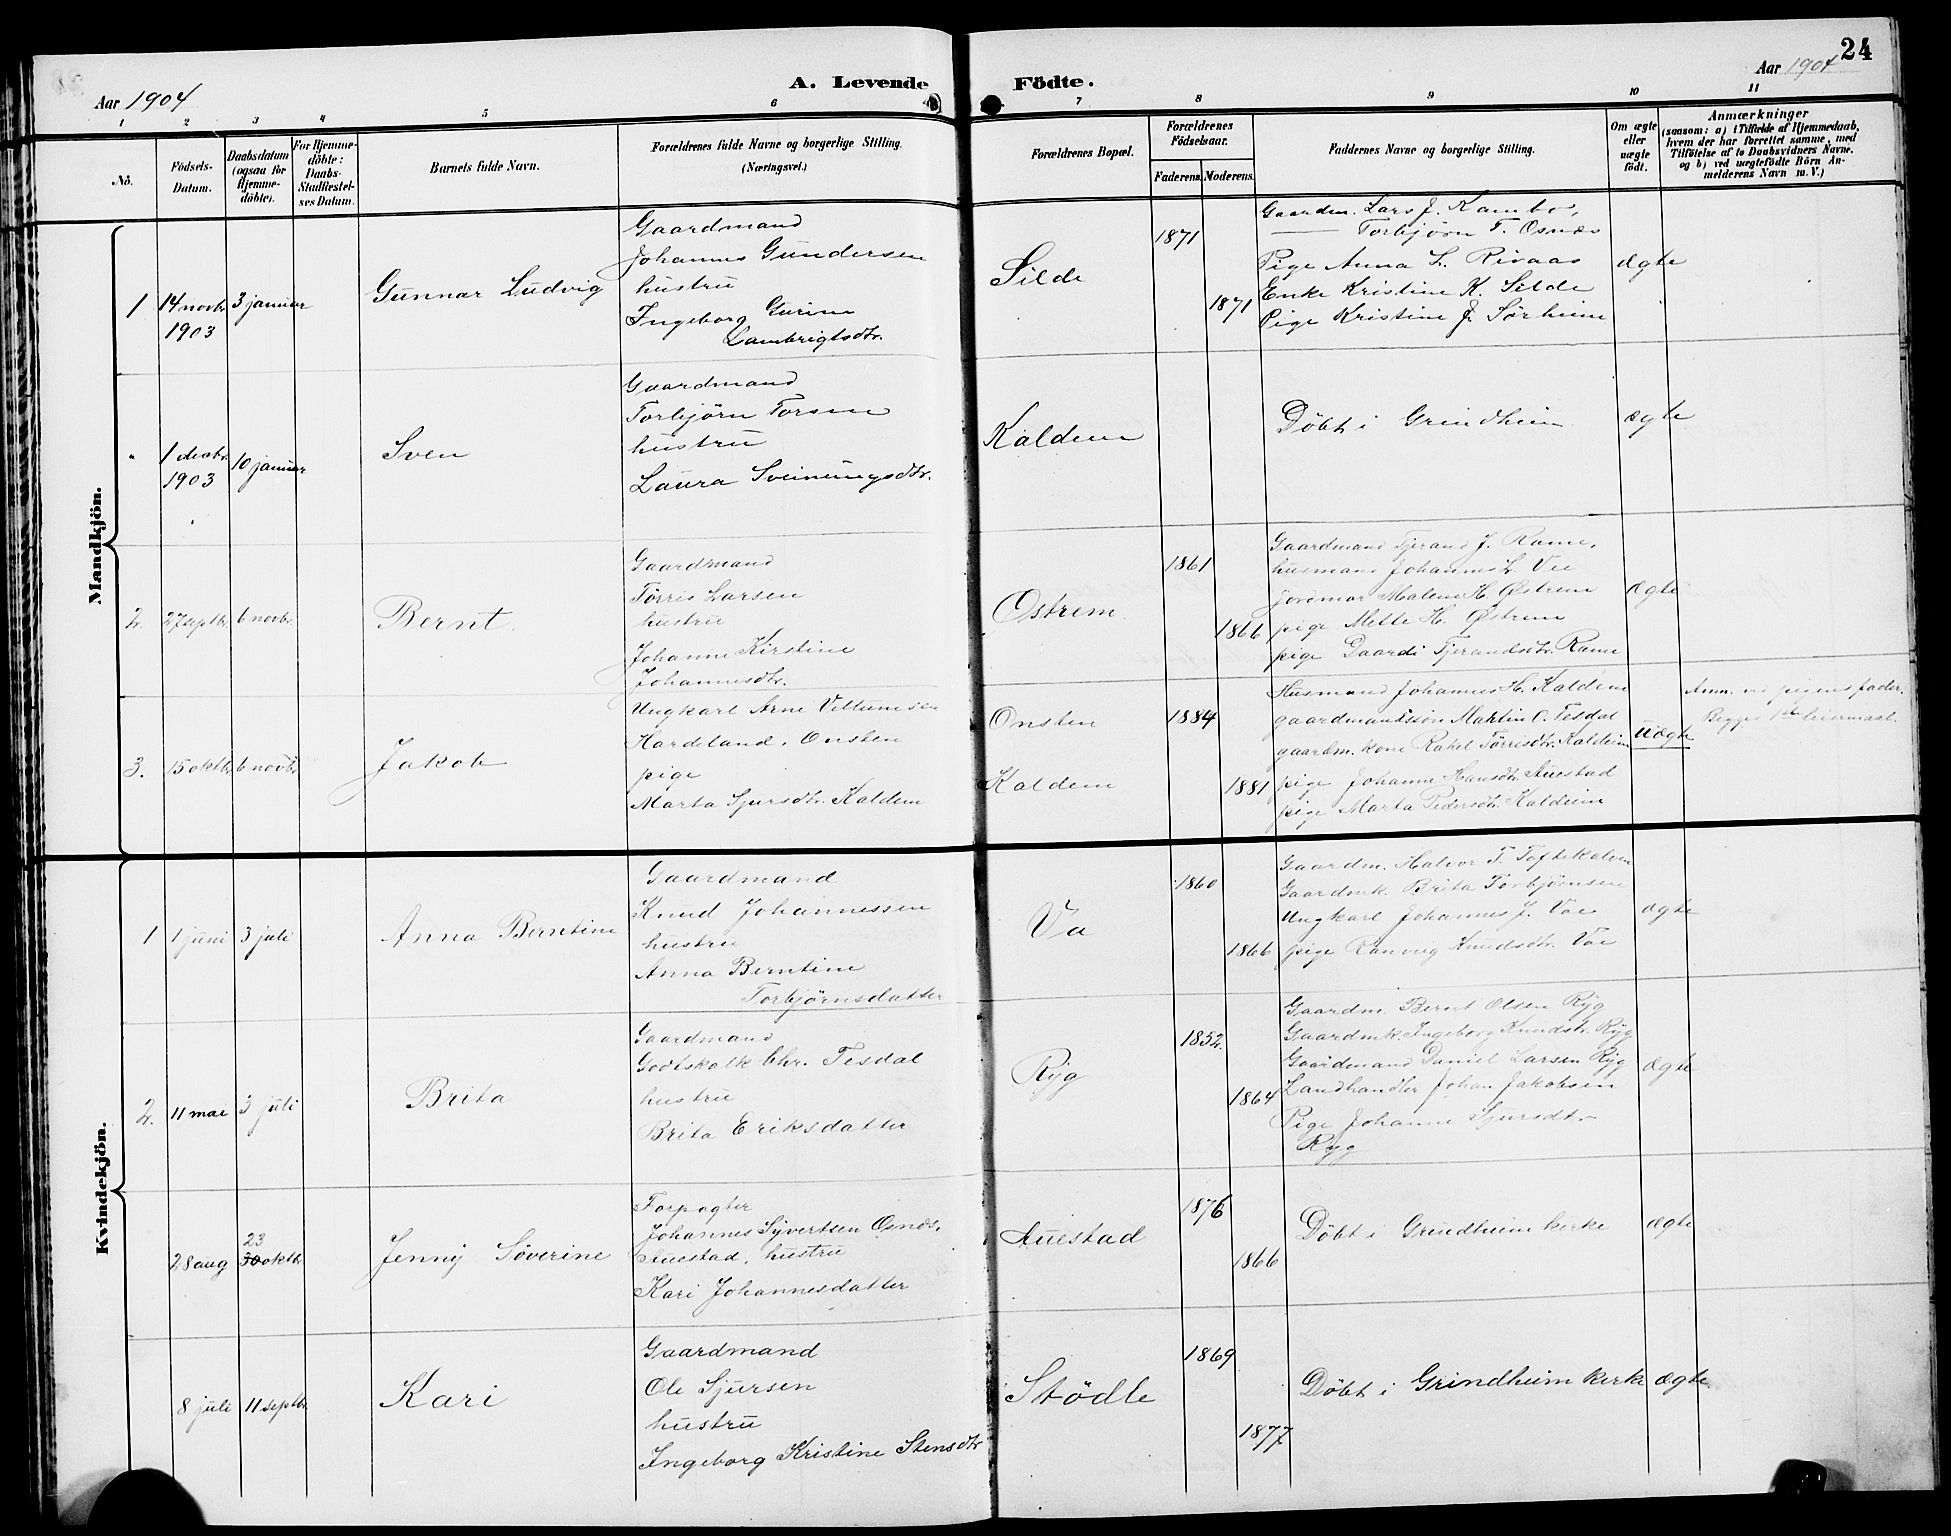 24
Aar 1904
A. Levende Födte.
Aar 1904
1 2 3 4 5 6 7 8 9 10 11
No.
Födsels-Datum.
Daabsdatum (ogsaa for Hjemme-döbte).
For Hjemme-döbte: Daabs-Stadfæstel-ses Datum.
Barnets fulde Navn.
Forældrenes fulde Navne og borgerlige Stilling. (Næringsvei.)
Forældrenes Bopæl.
Forældrenes Födselsaar.
Faderens. Moderens.
Faddernes Navne og borgerlige Stilling.
Om ægte eller uægte födt.
Anmærkninger
(saasom: a) i Tilfælde af Hjemmedaab,
hvem der har forrettet samme, med
Tilföielse af to Daabsvidners Navne.
og b) ved uægtefödte Börn An-
melderens Navn m. V.)
Mandkjön.
1
14 novbr 1903
3 januar
Gunnar Ludvig
Gaardmand
Johannes Gundersen
hustru
Ingeborg Gurine
Lambrigtsdtr.
Silde
1871
1871
Gaardm. Lars J. Kambo,
—— Torbjörn T. Osnes
Pige Anna L. Rivaas
Enke Kristine K. Silde
Pige Kristine J. Sörheim
ægte
"
1 decbr. 1903
10 januar
Sven
Gaardmand
Torbjörn Torsen
hustru
Laura Sveinungsdtr.
Kaldem
Döbt i Grindheim
ægte
2.
27 septbr
6 novbr
Bernt
Gaardmand
Törris Larsen
hustru
Johanne Kirstine
Johannesdtr.
Östrem
1861
1866
Gaardmand Tjerand J. Rame,
husmand Johannes L. Vae
jordmor Malene H. Østrem
pige Mette H. Østrem
pige Daardi Tjerandsdtr. Rame
ægte
3.
15 oktbr
6 novbr
Jakob
Ungkarl Arne Villumsen
Hardeland, Onsten
pige
Marta Sjursdtr. Kaldem
Onsten
Kaldem
1884
1881
Husmand Johannes H. Kaldem
gaardmandssön Martin O. Tesdal
gaardm. kone Rakel Törrisdtr. Kaldeim
pige Johanne Hansdtr. Auestad
pige Marta Pedersdtr. Kaldeim
uægte
Anm. ved pigens fader.
Begges 1ste leiermaal.
Kvindekjön.
1
1 juni
3 juli
Anna Berntine
Gaardmand
Knud Johannessen
hustru
Anna Berntine
Torbjörnsdatter
Va
1860
1866
Gaardm. Halvor T. Toftekalven
Gaardmk. Brita Torbjörnsen
Ungkarl Johannes J. Vae
pige Ranveig Knudsdtr. Vae
ægte
2.
11 mai
3 juli
Brita
Gaardmand
Godtskalk Chr. Tesdal
hustru
Brita Eriksdatter
Ryg
1852.
1864
Gaardm. Bernt Olsen Ryg
Gaardmk. Ingeborg Knudsdtr. Ryg
Gaardmand Daniel Larsen Ryg
Landhandler Johan Jakobsen
Pige Johanne Sjursdtr
Ryg
ægte
28 aug
23
30 oktbr
Jenny Söverine
Forpagter
Johannes Syvertsen Osnes,
Auestad, hustru
Kari Johannesdatter
Auestad
1876
1866
Döbt i Grindheim kirke
ægte
8 juli
11 septbr
Kari
Gaardmand
Ole Sjursen
hustru
Ingeborg Kristine Stensdtr
Stödle
1869
1877
Döbt i Grindheim kirke
ægte.